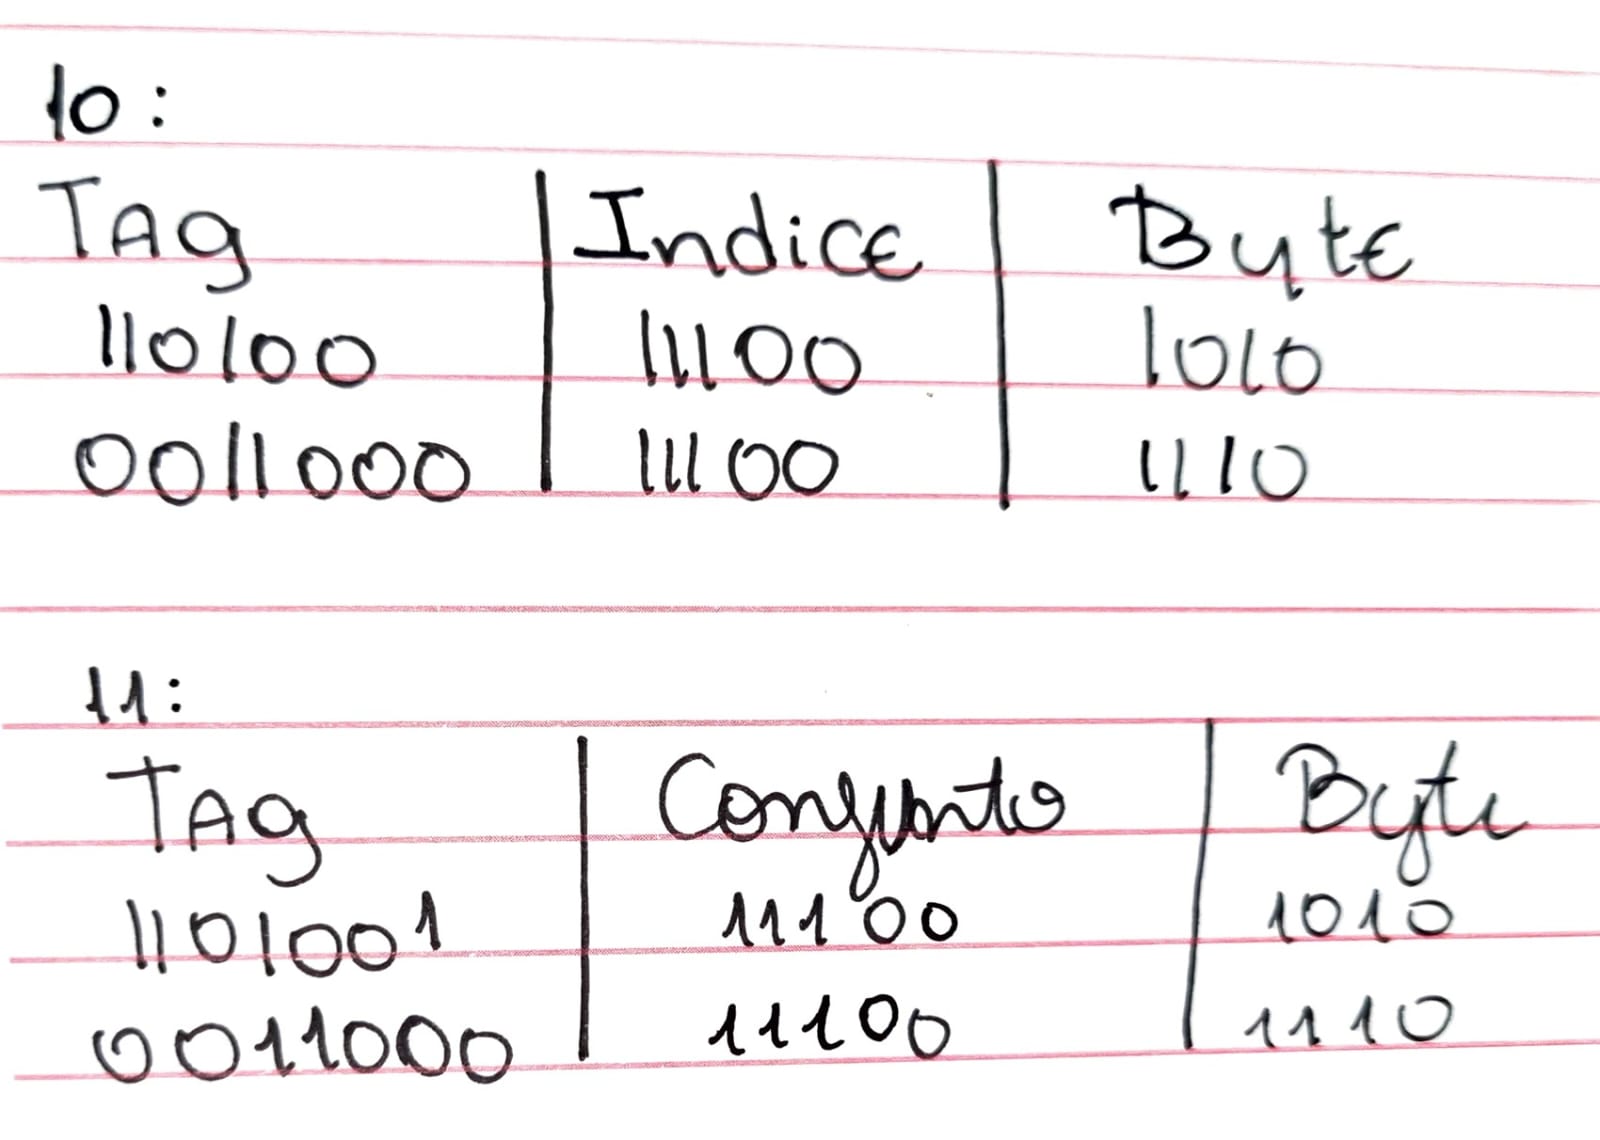 10:
TAg | Indice | Byte
110100 | 11100 | 1010
0011000 | 11100 | 1110
11:
TAg | Conjunto | Byte
1101001 | 11100 | 1010
0011000 | 11100 | 1110